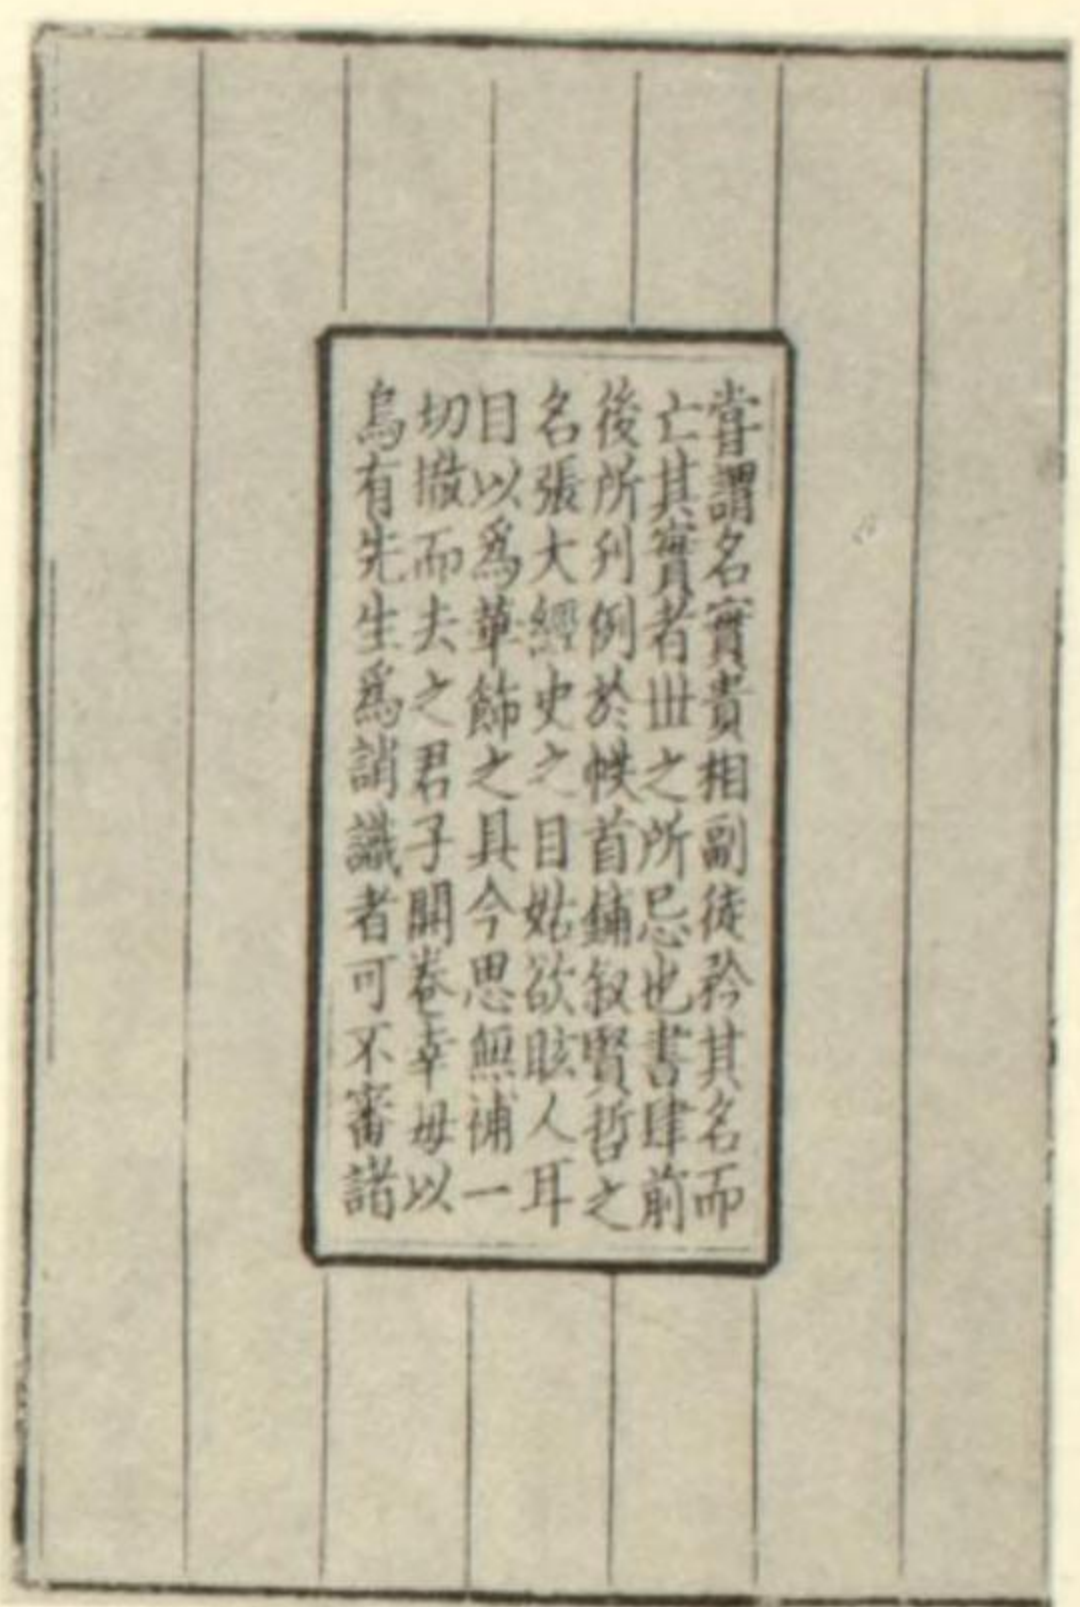 甞謂名實貴相副徒矜其名而
亡其實者丗之所忌也書肆前
後所刊例於帙首鋪叙賢哲之
名張大經史之目姑欲眩人耳
目以爲華飾之具今思無補一
切撤而去之君子開卷幸毋以
烏有先生爲誚識者可不審諸